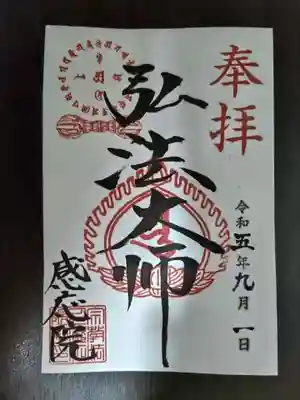 奉拝
令和五年九月一日
弘法大師
感応院